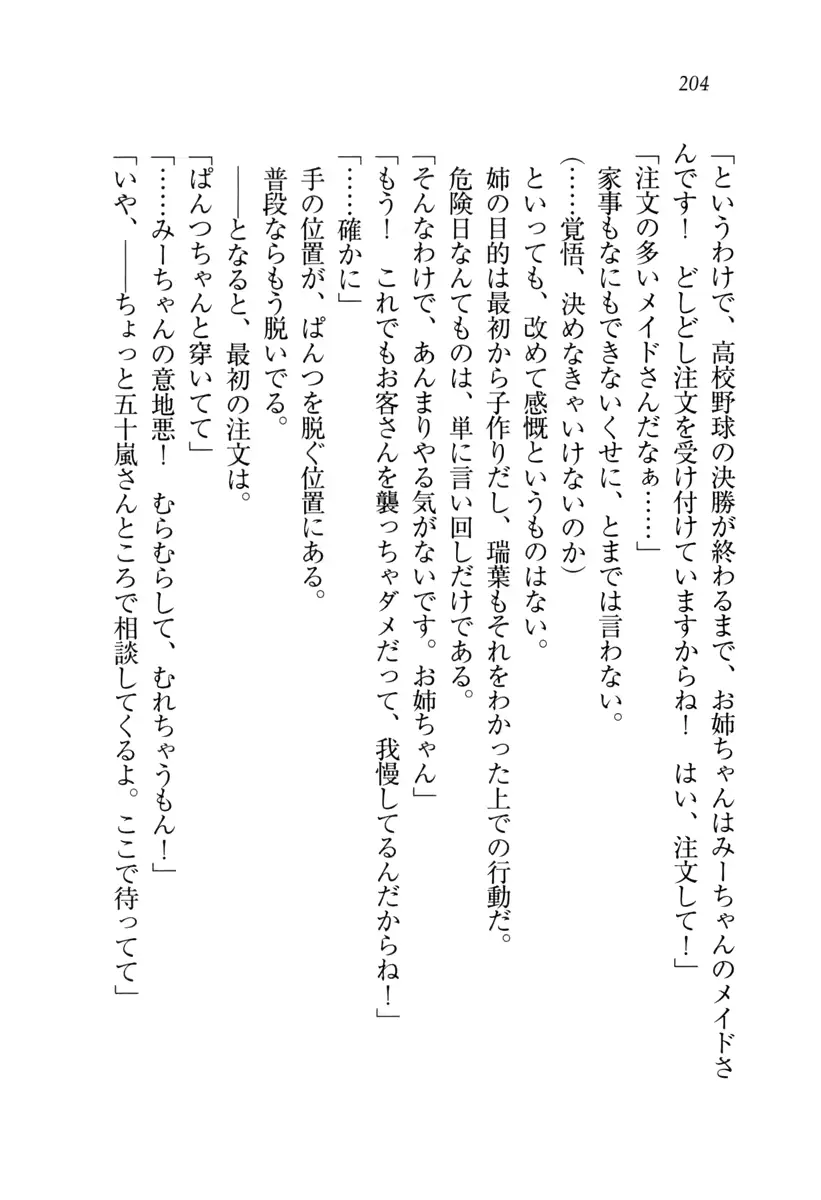 204
「というわけで、高校野球の決勝が終わるまで、お姉ちゃんはみーちゃんのメイドさ
んです！　どしどし注文を受け付けていますからね！　はい、注文して！」
「注文の多いメイドさんだなぁ……」
家事もなにもできないくせに、とまでは言わない。
（……覚悟、決めなきゃいけないのか）
といっても、改めて感慨というものはない。
姉の目的は最初から子作りだし、瑞葉もそれをわかった上での行動だ。
危険日なんてものは、単に言い回しだけである。
「そんなわけで、あんまりやる気がないです。お姉ちゃん」
「もう！　これでもお客さんを襲っちゃダメだって、我慢してるんだからね！」
「……確かに」
手の位置が、ぱんつを脱ぐ位置にある。
普段ならもう脱いでる。
――となると、最初の注文は。
「ぱんつちゃんと穿いてて」
「……みーちゃんの意地悪！　むらむらして、むれちゃうもん！」
「いや、――ちょっと五十嵐さんところで相談してくるよ。ここで待ってて」